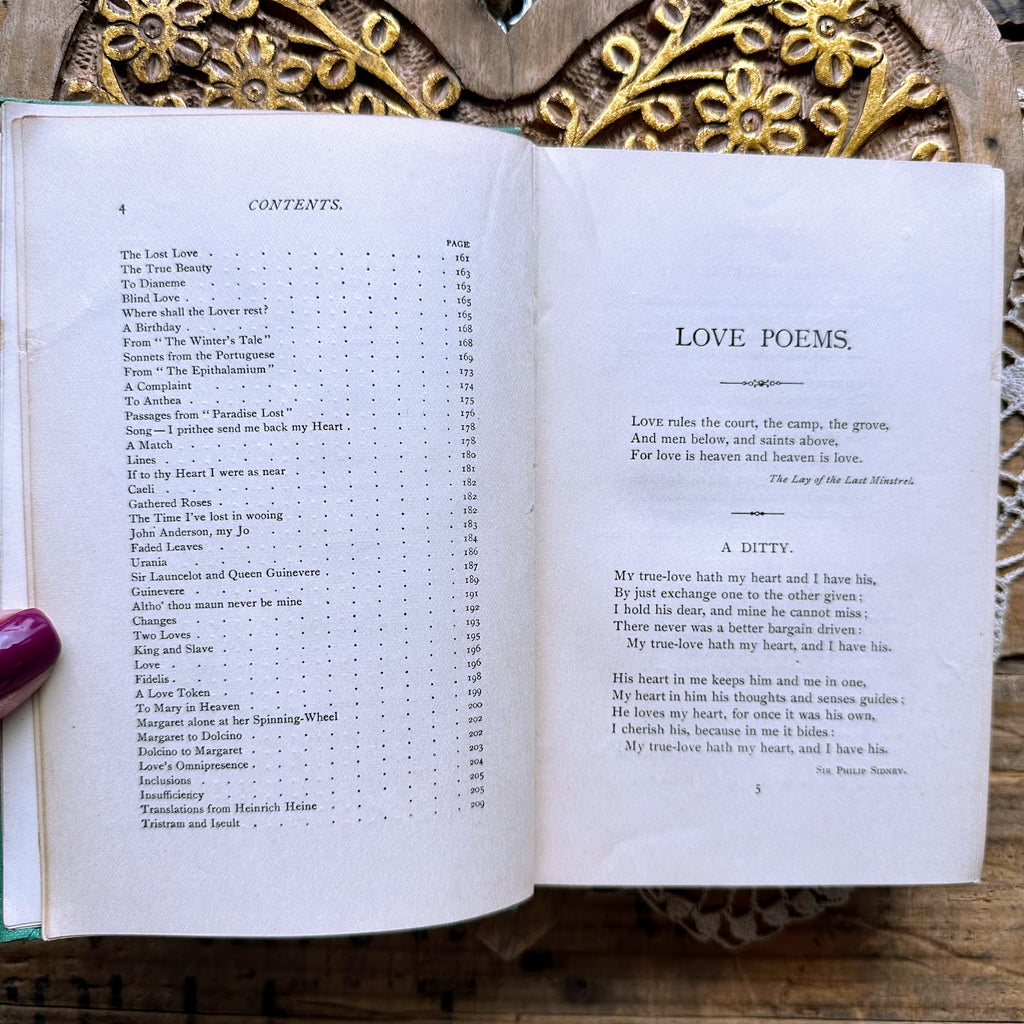 4 CONTENTS.
PAGE
The Lost Love . . . . . . . . 161
The True Beauty . . . . . . . . 163
To Dianeme . . . . . . . . 163
Blind Love . . . . . . . . 165
Where shall the Lover rest? . . . . . . 165
A Birthday . . . . . . . . 168
From “The Winter's Tale” . . . . . . 168
Sonnets from the Portuguese . . . . . . 169
From “The Epithalamium” . . . . . . 173
A Complaint . . . . . . . . 174
To Anthea . . . . . . . . 175
Passages from “Paradise Lost” . . . . . 176
Song—I prithee send me back my Heart . . . . 178
A Match . . . . . . . . 178
Lines . . . . . . . . 180
If to thy Heart I were as near . . . . . 181
Caeli . . . . . . . . 182
Gathered Roses . . . . . . . . 182
The Time I've lost in wooing . . . . . 182
John Anderson, my Jo . . . . . . 183
Faded Leaves . . . . . . . 184
Urania . . . . . . . . 186
Sir Launcelot and Queen Guinevere . . . . 187
Guinevere . . . . . . . . 189
Altho' thou maun never be mine . . . . . 191
Changes . . . . . . . . 192
Two Loves . . . . . . . . 193
King and Slave . . . . . . . 195
Love . . . . . . . . 196
Fidelis . . . . . . . . 196
A Love Token . . . . . . . 198
To Mary in Heaven . . . . . . 199
Margaret alone at her Spinning-Wheel . . . . 200
Margaret to Dolcino . . . . . . 202
Dolcino to Margaret . . . . . . 202
Love's Omnipresence . . . . . . 203
Inclusions . . . . . . . . 204
Insufficiency . . . . . . . 205
Translations from Heinrich Heine . . . . 205
Tristram and Iseult . . . . . . 209
LOVE POEMS.
LOVE rules the court, the camp, the grove,
And men below, and saints above,
For love is heaven and heaven is love.
The Lay of the Last Minstrel.
A DITTY.
MY true-love hath my heart and I have his,
By just exchange one to the other given;
I hold his dear, and mine he cannot miss;
There never was a better bargain driven:
My true-love hath my heart, and I have his.
His heart in me keeps him and me in one,
My heart in him his thoughts and senses guides;
He loves my heart, for once it was his own,
I cherish his, because in me it bides:
My true-love hath my heart, and I have his.
SIR PHILIP SIDNEY.
5